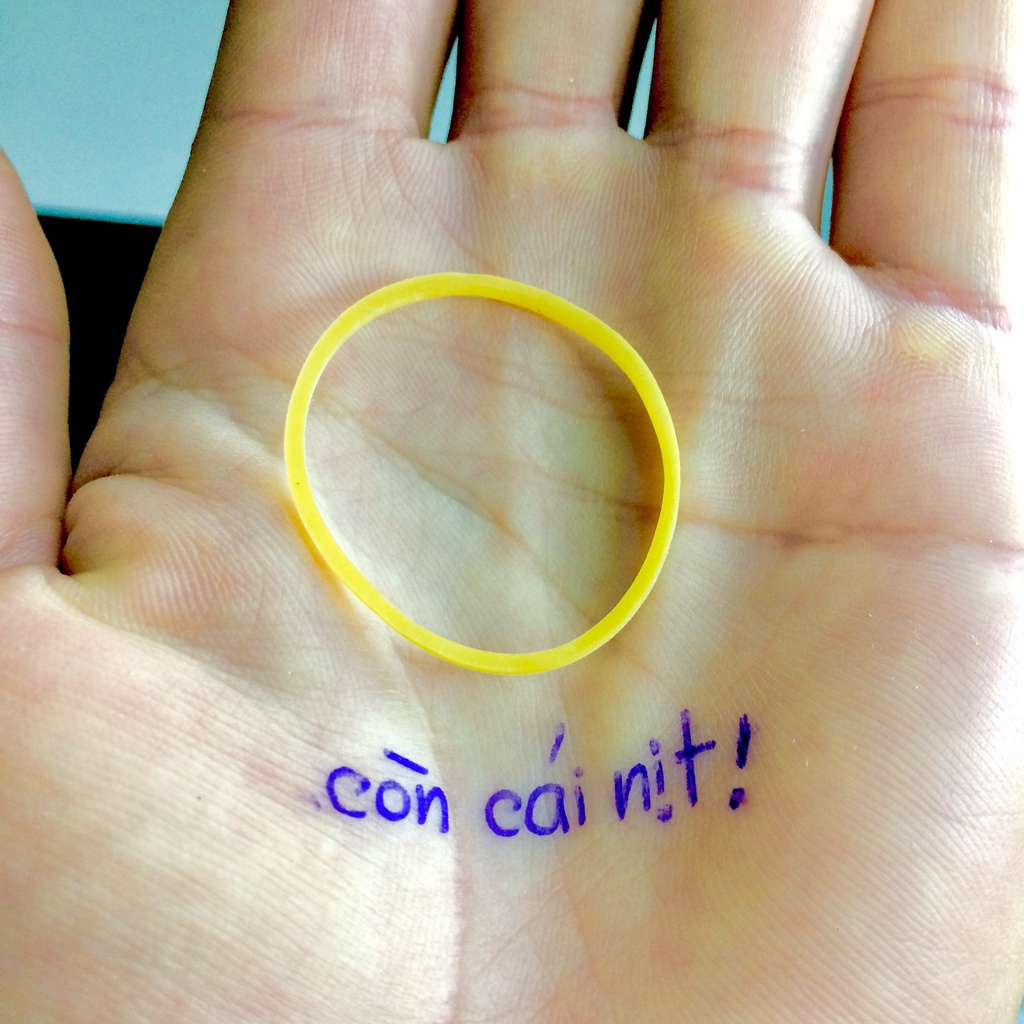 còn cái nịt!